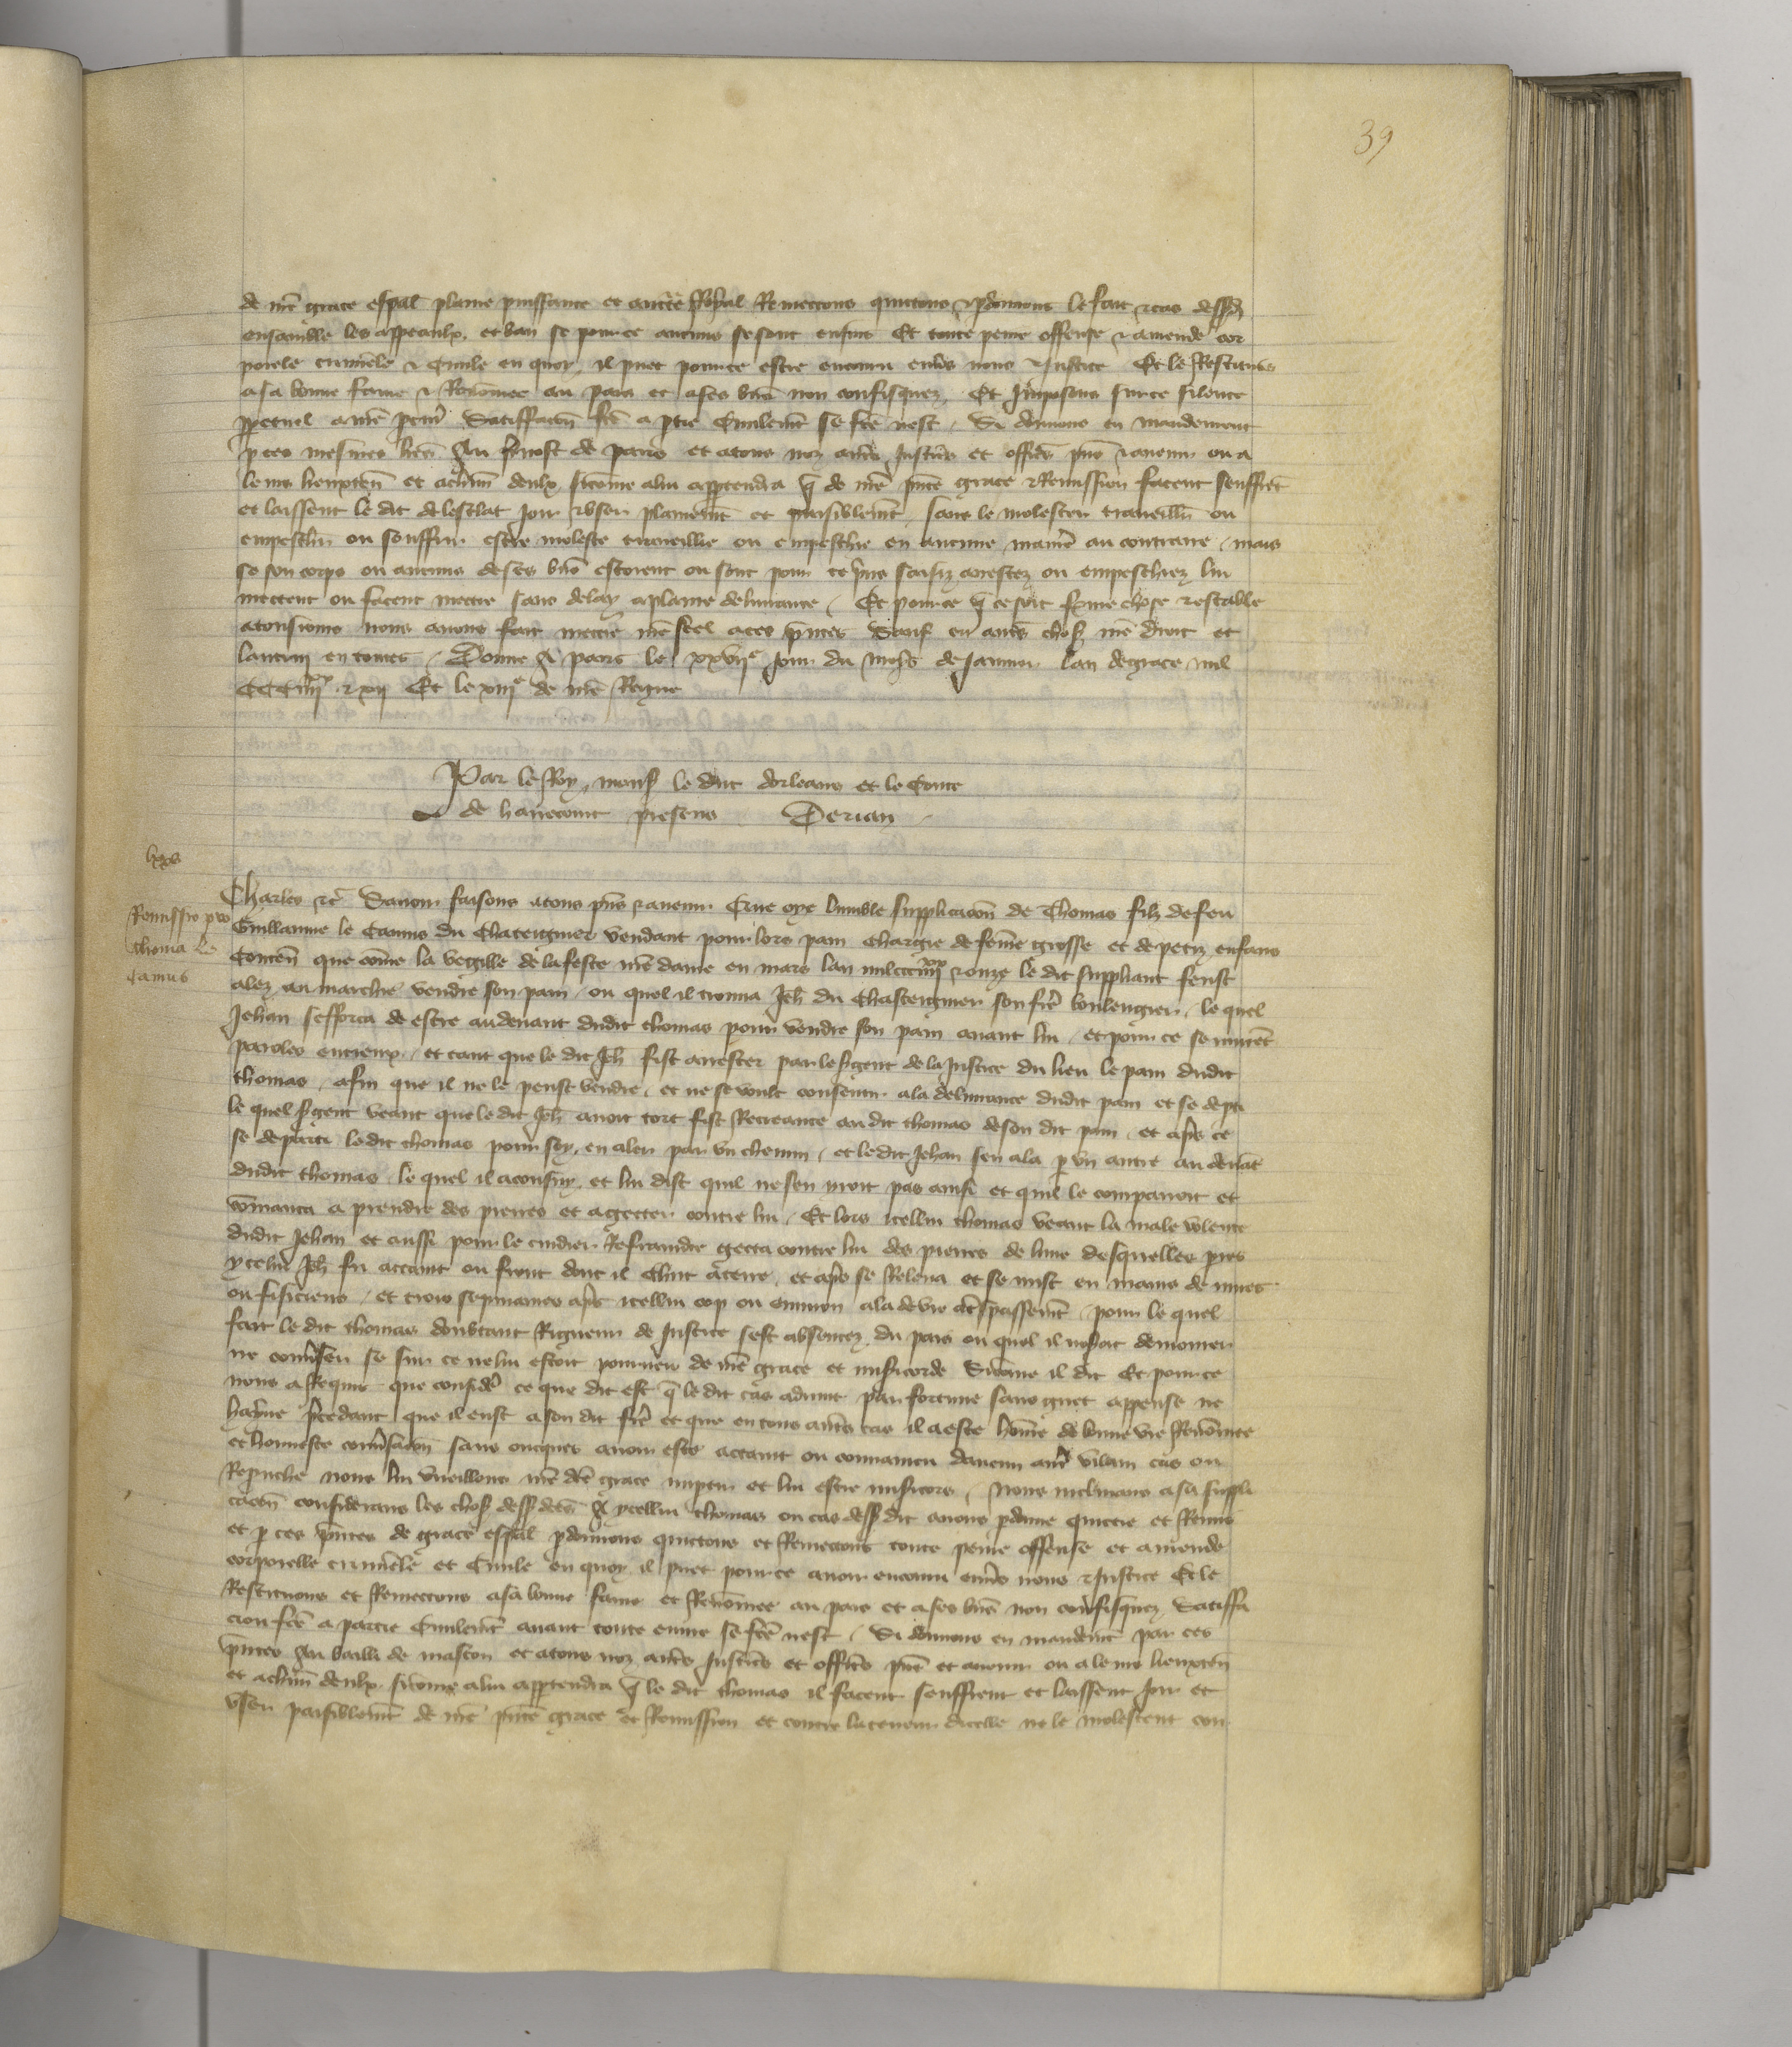 39
de nrē grace espāl plaine puissance et auctē Royal Remectons quictons & pdonnons le fait & cas dessd
ensamble les appeaulx et ban se pour ce aucuns se sont ensuis Et toute peine offense & amende cor
porele criminele & Civile en quoy il puet pour ce estre encouru enūs nous & Justice Et le Restituōs
a sa bonne fame & Renōmee au pais et a ses biēs non confisquez Et Imposons sur ce silence
ppetuel a nrē procur Satiffacōn fcē a ptie Civilemēt se fcē nest Si donnons en mandement
p ces mesmes lrēs Au pvost de paris et a tous noz autēs Justicēs et officēs pns & avenir ou a
leurs lieuxten et a chūn deulx si cōme a lui apptendra q̄ de nrē pnte grace & Remission facent seuffrēt
et laissent le dit de lesclat Joir & user plainemēt et paisiblemēt sans le molester travaillier ou
empeschier ou souffrir estre moleste traveillie ou empeschie en aucune maniē au contraire mais
se son corps ou aucuns de ses biēs estoient ou sont pour ce pris saisiz arrestez ou empeschiez lui
mettent ou facent mettre sans delay a plaine delivrance Et pour ce q̄ ce soit ferme chose & estable
a tousiours nous avons fait mettre nrē scel a ces pntes Sauf en autēs choses nrē droit et
lautrui en toutes Donne A paris le xxvije Jour du mois de Janvier Lan de grace mil
CCC iiijxx & xij Et le xiije de nrē Regne
Par le Roy, mons le duc dorleans et le Conte
de harecourt presens Derian
Remissio pro
Thoma Le
Camus
Charles &c Savoir faisons a tous pns & avenir Crue oye lumble supplicacōn de Thomas filz de feu
Guillaume le Camus du Chateignier vendant pour lors pain chargie de fēme grosse et de petiz enfans
Contenān que cōme la vegille de la feste nrē dame en mars lan mil ccc iiijxx & onze le dit suppliant feust
alez au marchie vendre son pain ou quel il trouva Jeh du Chasteignier son frē boulengier le quel
Jehan sefforca de estre au devant dudit thomas pour vendre son pain avant lui et pour ce se murēt
paroles entreux et tant que le dit Jeh fist arrester par le sgent de la Justice du lieu le pain dudit
thomas afin que il ne le peust vendre et ne se voult consentir a la delivrance dudit pain et se depti
le quel sgent veant que le dit Jeh avoit tort fist Recreance au dit thomas de son dit pain et aprēs ce
se departi le dit thomas pour soy en aler par un chemin et le dit Jehan sen ala p un autre au devāt
dudit thomas le quel il aconsuy et lui dist quil ne sen yroit pas ainsi et quil le comparroit et
cōmanca a prendre des pierres et a gecter contre lui Et lors icellui thomas veant la male volente
dudit Jehan et aussi pour le cuidier Refraindre gecta contre lui des pierres de lune desquelles pierēs
ycelui Jeh fu attaint ou front dont il chut a terre et aprēs se Releva et se mist en mains de mires
ou fisiciens et trois sepmaines aprēs icellui cop ou environ ala de vie a trespassemēt pour le quel
fait le dit thomas doubtant Rigueur de Justice sest absentez du pais ou quel il noseroit demourer
ne convser se sur ce ne lui estoit pourveu de nrē grace et misicorde Si cōme il dit Et pour ce
nous a Requis que consideē ce que dit est q̄ le dit cas advint par fortune sans guet appense ne
hayne pcedant que il eust a son dit frē et que en tous autēs cas il a este hōme de bonne vie Renōmee
et honneste convsacōn sans oncques avoir este attaint ou convaincu daucun autē vilain cas ou
Reprouche nous lui vueillons nrē dcē grace impartir et lui estre misicors Nous inclinans a sa suppli
cacōn considerans les choses dess dctēs A ycellui thomas ou cas dess dit avons pdonne quictie et Remis
et p ces pntes de grace espāl pdonnons quictons et Remectons toute peine offense et amende
corporelle criminele et Civile en quoy il puet pour ce avoir encouru envēs nous & Justice Et le
Restituons et Remectons a sa bonne fame et Renōmee au pais et a ses biēs non confisquez Satiffa
cion fcē a partie Civilemēt avant toute euvre se fcē nest Si donnons en mandemēt par ces
pntes Au bailli de mascon et a tous noz autēs Justicēs et officēs pns et avenir ou a leurs lieuxten
et a chūn deulx si cōme a lui apptendra q̄ le dit thomas il facent seuffrent et laissent Joir et
user paisiblemēt de nrē pnte grace et Remission et contre la teneur dicelle ne le molestent con